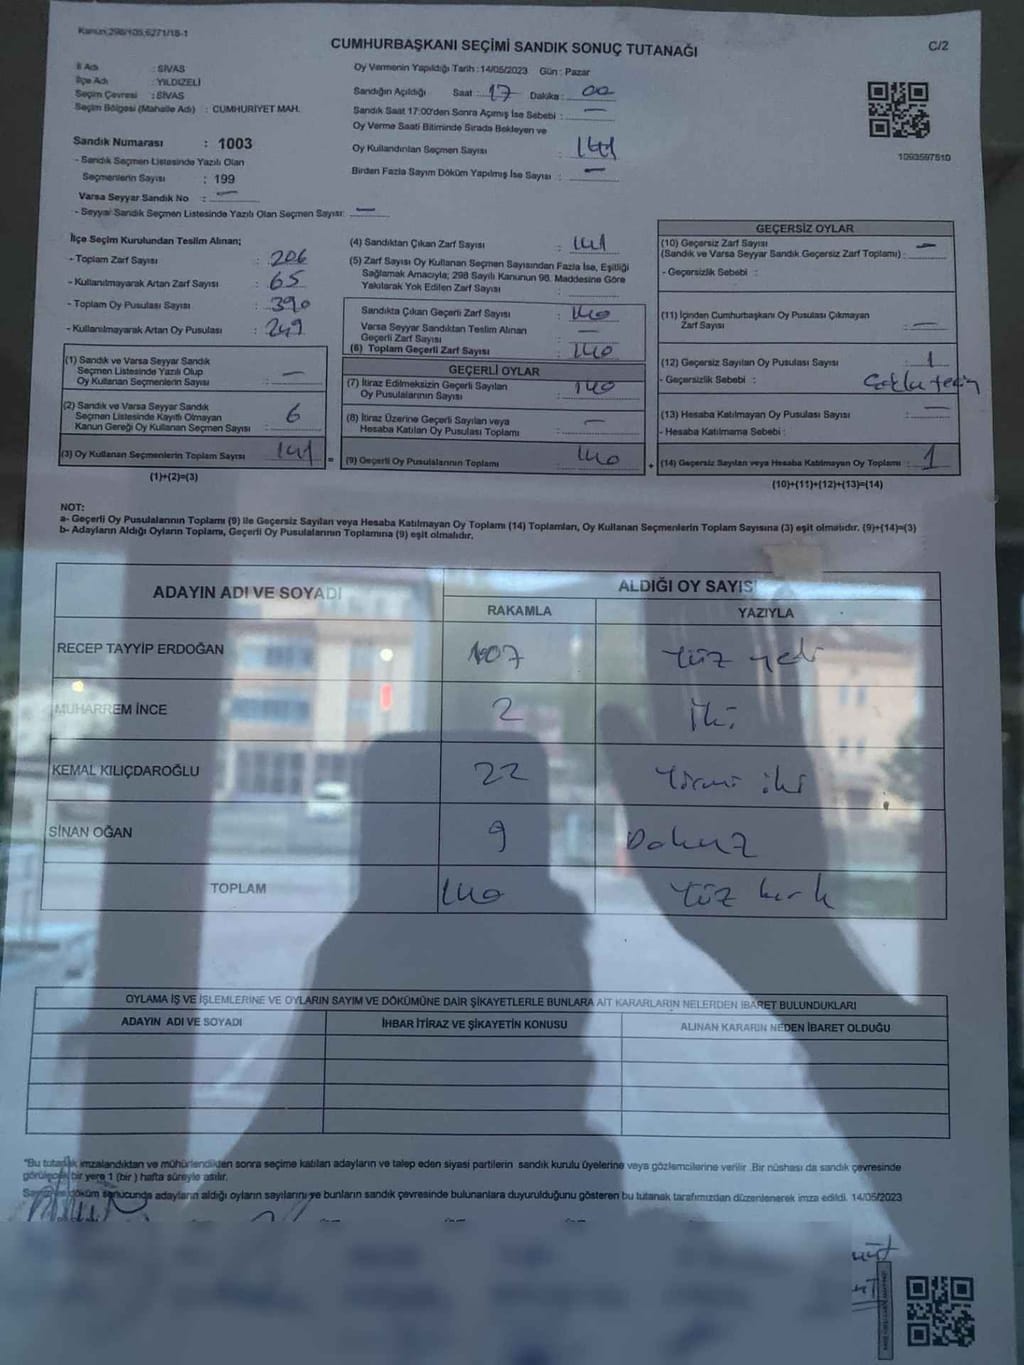 Kanun:298/105,6271/18-1
CUMHURBAŞKANI SEÇİMİ SANDIK SONUÇ TUTANAĞI
C/2
İl Adı : SİVAS
İlçe Adı : YILDIZELİ
Seçim Çevresi : SİVAS
Seçim Bölgesi (Mahalle Adı) : CUMHURİYET MAH.
Sandık Numarası : 1003
- Sandık Seçmen Listesinde Yazılı Olan
Seçmenlerin Sayısı : 199
Varsa Seyyar Sandık No : —
- Seyyar Sandık Seçmen Listesinde Yazılı Olan Seçmen Sayısı: —
Oy Vermenin Yapıldığı Tarih : 14/05/2023 Gün : Pazar
Sandığın Açıldığı Saat : 17 Dakika : 00
Sandık Saat 17:00'den Sonra Açılmış İse Sebebi : —
Oy Verme Saati Bitiminde Sırada Bekleyen ve
Oy Kullandırılan Seçmen Sayısı : 141
Birden Fazla Sayım Döküm Yapılmış İse Sayısı : —
1093597510
İlçe Seçim Kurulundan Teslim Alınan;
- Toplam Zarf Sayısı : 206
- Kullanılmayarak Artan Zarf Sayısı : 65
- Toplam Oy Pusulası Sayısı : 390
- Kullanılmayarak Artan Oy Pusulası : 249
(1) Sandık ve Varsa Seyyar Sandık
Seçmen Listesinde Yazılı Olup
Oy Kullanan Seçmenlerin Sayısı : —
(2) Sandık ve Varsa Seyyar Sandık
Seçmen Listesinde Kayıtlı Olmayan
Kanun Gereği Oy Kullanan Seçmen Sayısı : 6
(3) Oy Kullanan Seçmenlerin Toplam Sayısı : 141
(1)+(2)=(3)
(4) Sandıktan Çıkan Zarf Sayısı : 141
(5) Zarf Sayısı Oy Kullanan Seçmen Sayısından Fazla İse, Eşitliği
Sağlamak Amacıyla; 298 Sayılı Kanunun 98. Maddesine Göre
Yakılarak Yok Edilen Zarf Sayısı :
Sandıkta Çıkan Geçerli Zarf Sayısı : 140
Varsa Seyyar Sandıktan Teslim Alınan
Geçerli Zarf Sayısı : —
(6) Toplam Geçerli Zarf Sayısı : 140
GEÇERLİ OYLAR
(7) İtiraz Edilmeksizin Geçerli Sayılan
Oy Pusulalarının Sayısı : 140
(8) İtiraz Üzerine Geçerli Sayılan veya
Hesaba Katılan Oy Pusulası Toplamı : —
= (9) Geçerli Oy Pusulalarının Toplamı : 140
GEÇERSİZ OYLAR
(10) Geçersiz Zarf Sayısı
(Sandık ve Varsa Seyyar Sandık Geçersiz Zarf Toplamı) : —
- Geçersizlik Sebebi :
(11) İçinden Cumhurbaşkanı Oy Pusulası Çıkmayan
Zarf Sayısı : —
(12) Geçersiz Sayılan Oy Pusulası Sayısı : 1
- Geçersizlik Sebebi :
(13) Hesaba Katılmayan Oy Pusulası Sayısı : —
- Hesaba Katılmama Sebebi :
+ (14) Geçersiz Sayılan veya Hesaba Katılmayan Oy Toplamı : 1
(10)+(11)+(12)+(13)=(14)
NOT:
a- Geçerli Oy Pusulalarının Toplamı (9) ile Geçersiz Sayılan veya Hesaba Katılmayan Oy Toplamı (14) Toplamları, Oy Kullanan Seçmenlerin Toplam Sayısına (3) eşit olmalıdır. (9)+(14)=(3)
b- Adayların Aldığı Oyların Toplamı, Geçerli Oy Pusulalarının Toplamına (9) eşit olmalıdır.
ADAYIN ADI VE SOYADI ALDIĞI OY SAYISI
RAKAMLA YAZIYLA
RECEP TAYYİP ERDOĞAN 107 Yüz yedi
MUHARREM İNCE 2 İki
KEMAL KILIÇDAROĞLU 22 Yirmi iki
SİNAN OĞAN 9 Dokuz
TOPLAM 140 Yüz kırk
OYLAMA İŞ VE İŞLEMLERİNE VE OYLARIN SAYIM VE DÖKÜMÜNE DAİR ŞİKAYETLERLE BUNLARA AİT KARARLARIN NELERDEN İBARET BULUNDUKLARI
ADAYIN ADI VE SOYADI İHBAR İTİRAZ VE ŞİKAYETİN KONUSU ALINAN KARARIN NEDEN İBARET OLDUĞU
"Bu tutanak imzalandıktan ve mühürlendikten sonra seçime katılan adayların ve talep eden siyasi partilerin sandık kurulu üyelerine veya gözlemcilerine verilir. Bir nüshası da sandık çevresinde
görülecek bir yere 1 (bir) hafta süreyle asılır.
döküm sonucunda adayların aldığı oyların sayılarını ve bunların sandık çevresinde bulunanlara duyurulduğunu gösteren bu tutanak tarafımızdan düzenlenerek imza edildi. 14/05/2023